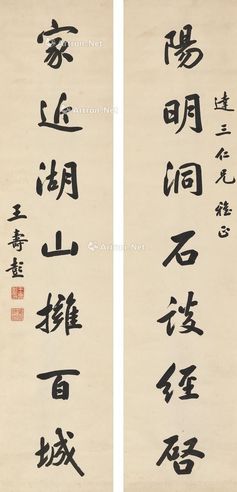 陽明洞石談經啓
達三仁兄雅正
家近湖山擁百城
王壽彭
Artron.Net